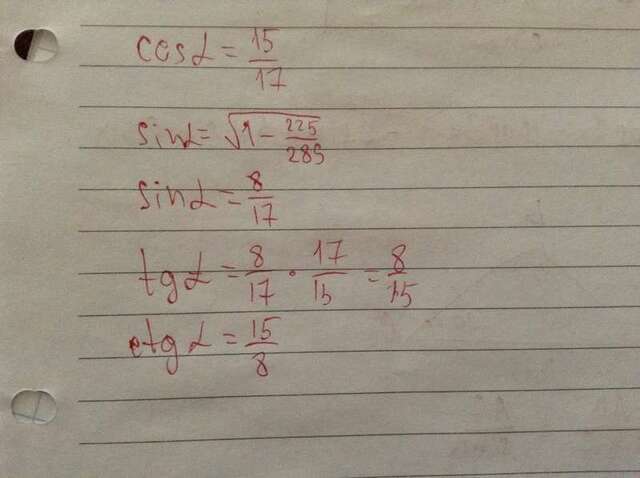 cosα = 15/17
sinα = √(1 - 225/289)
sinα = 8/17
tgα = 8/17 · 17/15 = 8/15
ctgα = 15/8